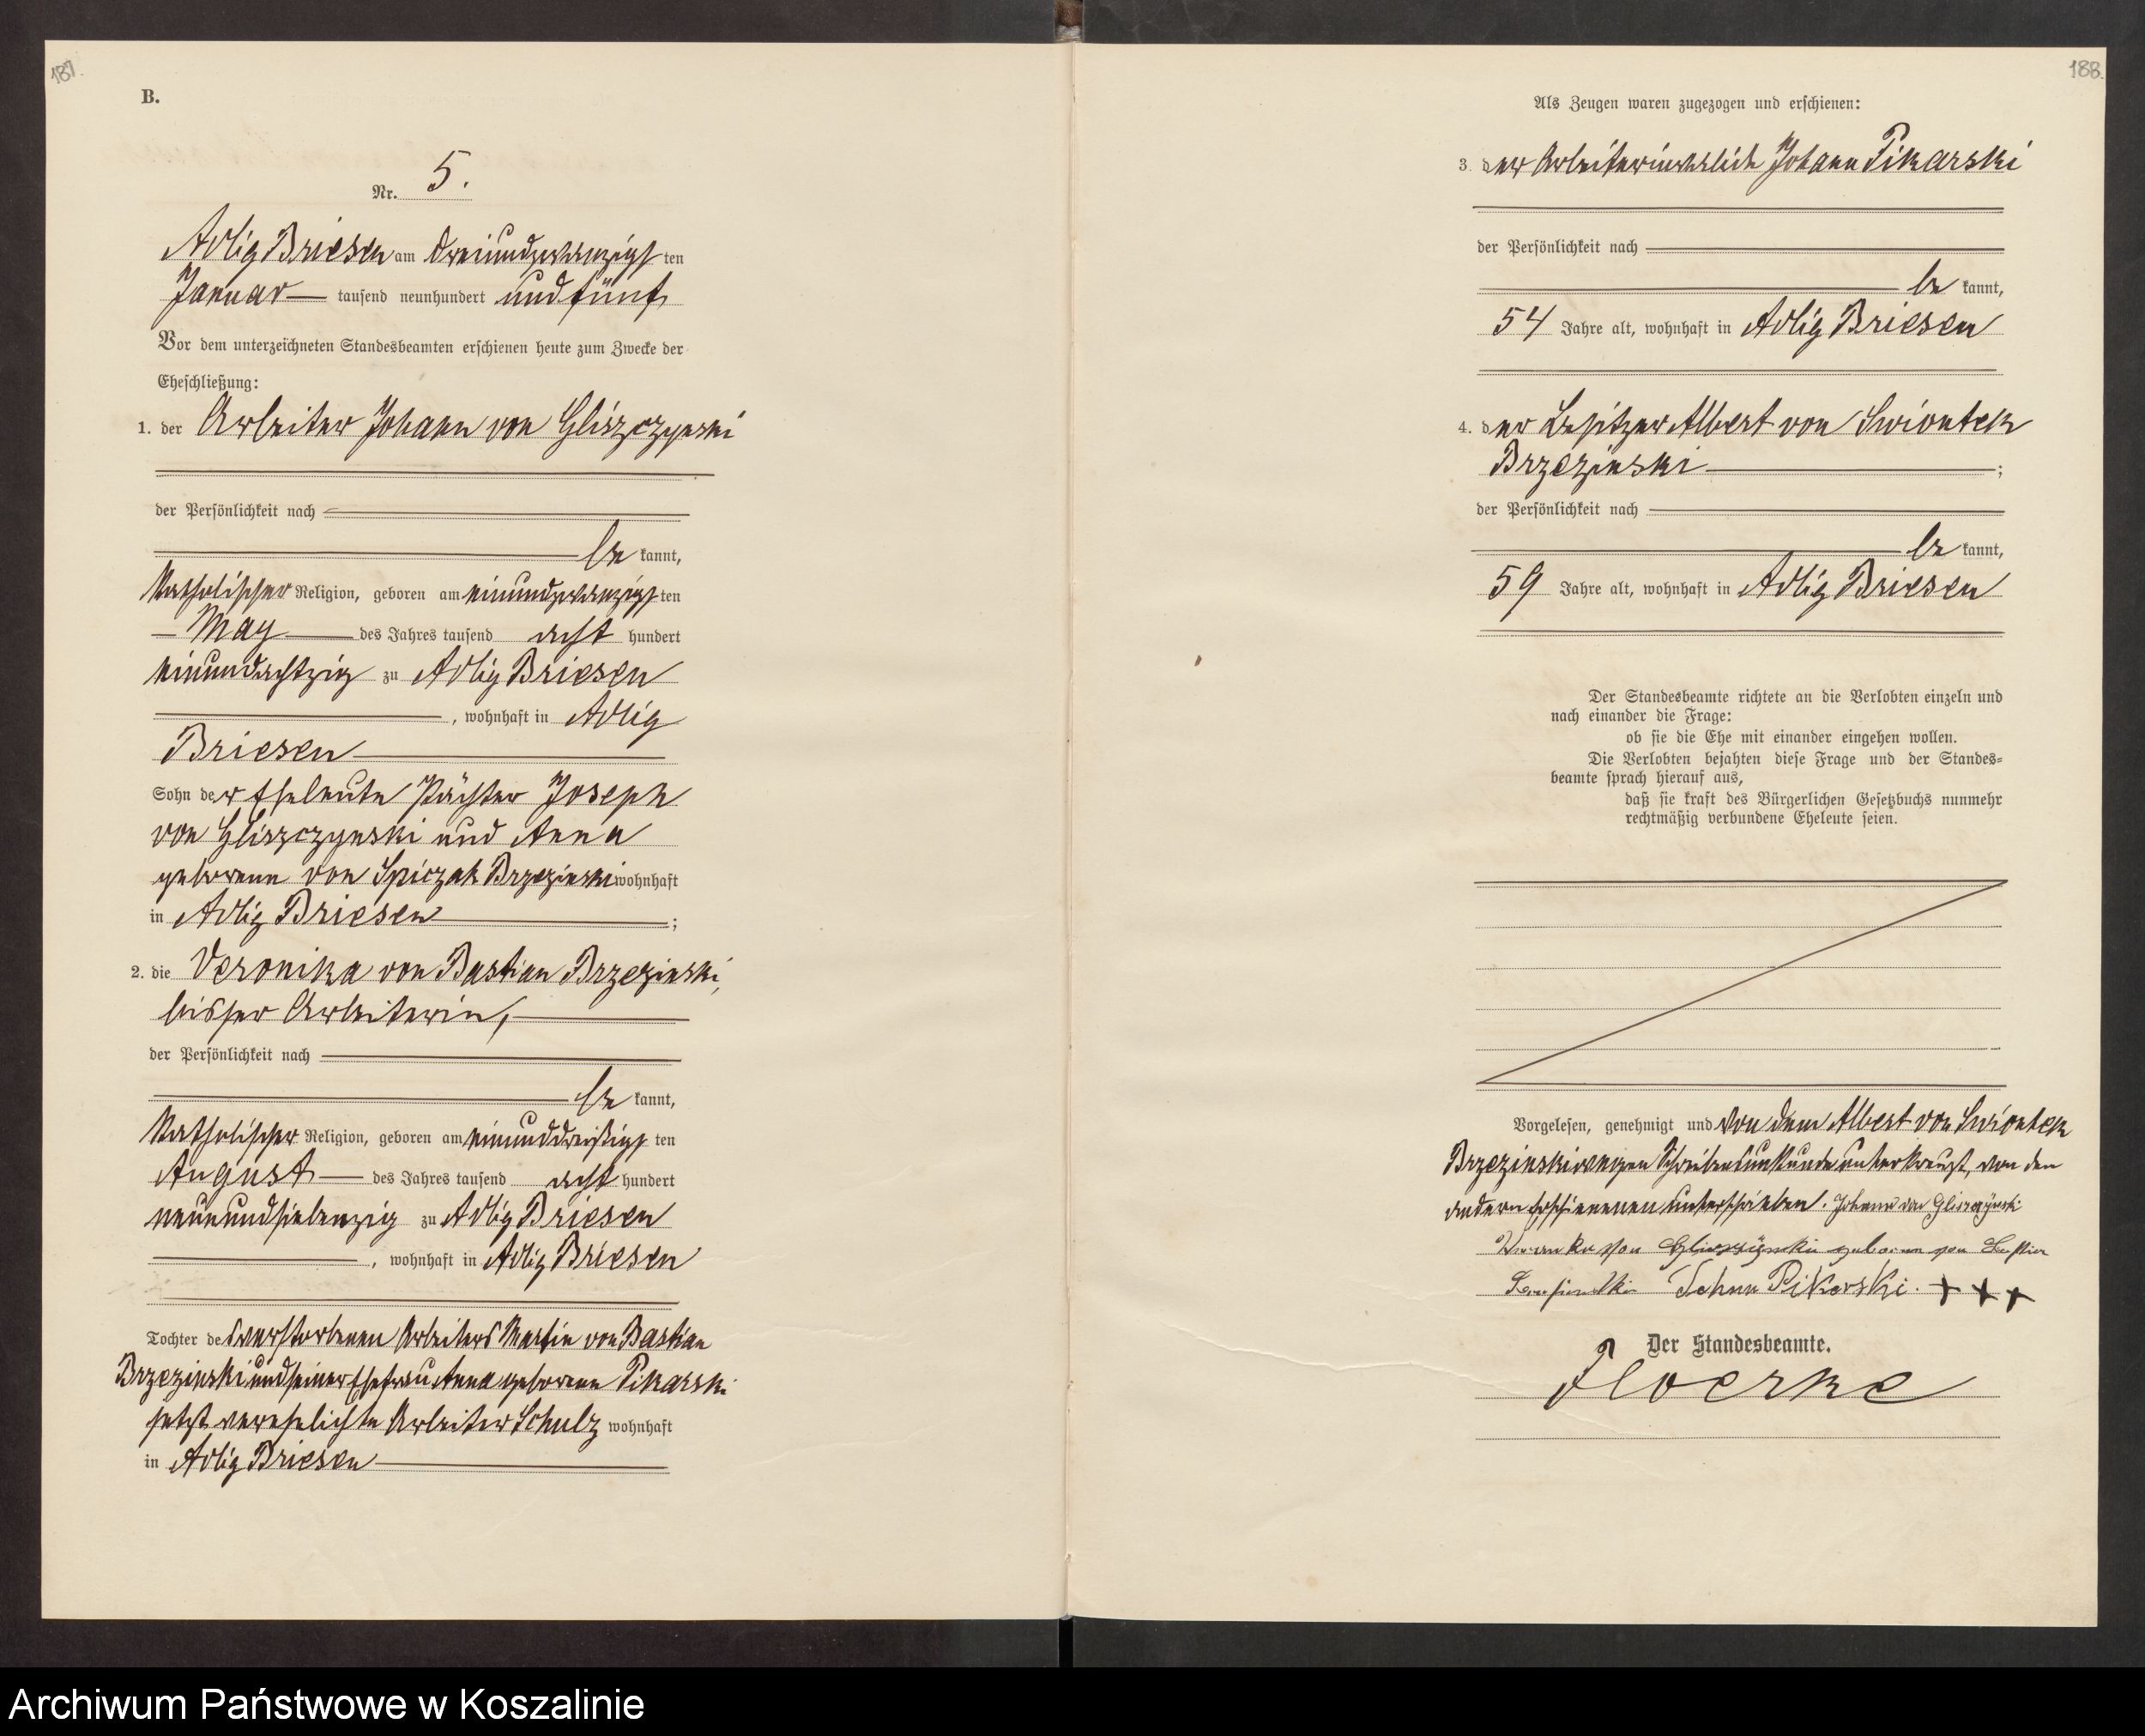 187.
B.
Nr. 5.
Adlig Briesen am dreiundzwanzigsten
Januar tausend neunhundert und fünf
Vor dem unterzeichneten Standesbeamten erschienen heute zum Zwecke der
Eheschließung:
1. der Arbeiter Johann von Gliszczynski
der Persönlichkeit nach
be kannt,
katholischer Religion, geboren am einundzwanzigsten
May des Jahres tausend acht hundert
einundachtzig zu Adlig Briesen
, wohnhaft in Adlig
Briesen
Sohn der Eheleute Pächter Joseph
von Gliszczynski und Anna
geborene von Spiczak Brzezinski wohnhaft
in Adlig Briesen ;
2. die Veronika von Bastian Brzezinski,
bisher Arbeiterin,
der Persönlichkeit nach
be kannt,
katholischer Religion, geboren am einunddreißigsten
August des Jahres tausend acht hundert
neunundsiebenzig zu Adlig Briesen
, wohnhaft in Adlig Briesen
Tochter des verstorbenen Arbeiters Martin von Bastian
Brzezinski und seiner Ehefrau Anna geborene Pikarski
jetzt verehelichte Arbeiter Schulz wohnhaft
in Adlig Briesen
188.
Als Zeugen waren zugezogen und erschienen:
3. der Johann Pikarski
der Persönlichkeit nach
be kannt,
54 Jahre alt, wohnhaft in Adlig Briesen
4. der Besitzer Albert von Swiontek
Brzezinski ;
der Persönlichkeit nach
be kannt,
59 Jahre alt, wohnhaft in Adlig Briesen
Der Standesbeamte richtete an die Verlobten einzeln und
nach einander die Frage:
ob sie die Ehe mit einander eingehen wollen.
Die Verlobten bejahten diese Frage und der Standes-
beamte sprach hierauf aus,
daß sie kraft des Bürgerlichen Gesetzbuchs nunmehr
rechtmäßig verbundene Eheleute seien.
Vorgelesen, genehmigt und von dem Albert von Swiontek
Brzezinski wegen Schreibensunkunde unterkreuzt, von den
andern Erschienenen unterschrieben. Johann von Gliszczynski
von geborene von Bastian
Pikarski. +++
Der Standesbeamte.
Floerke
Archiwum Państwowe w Koszalinie